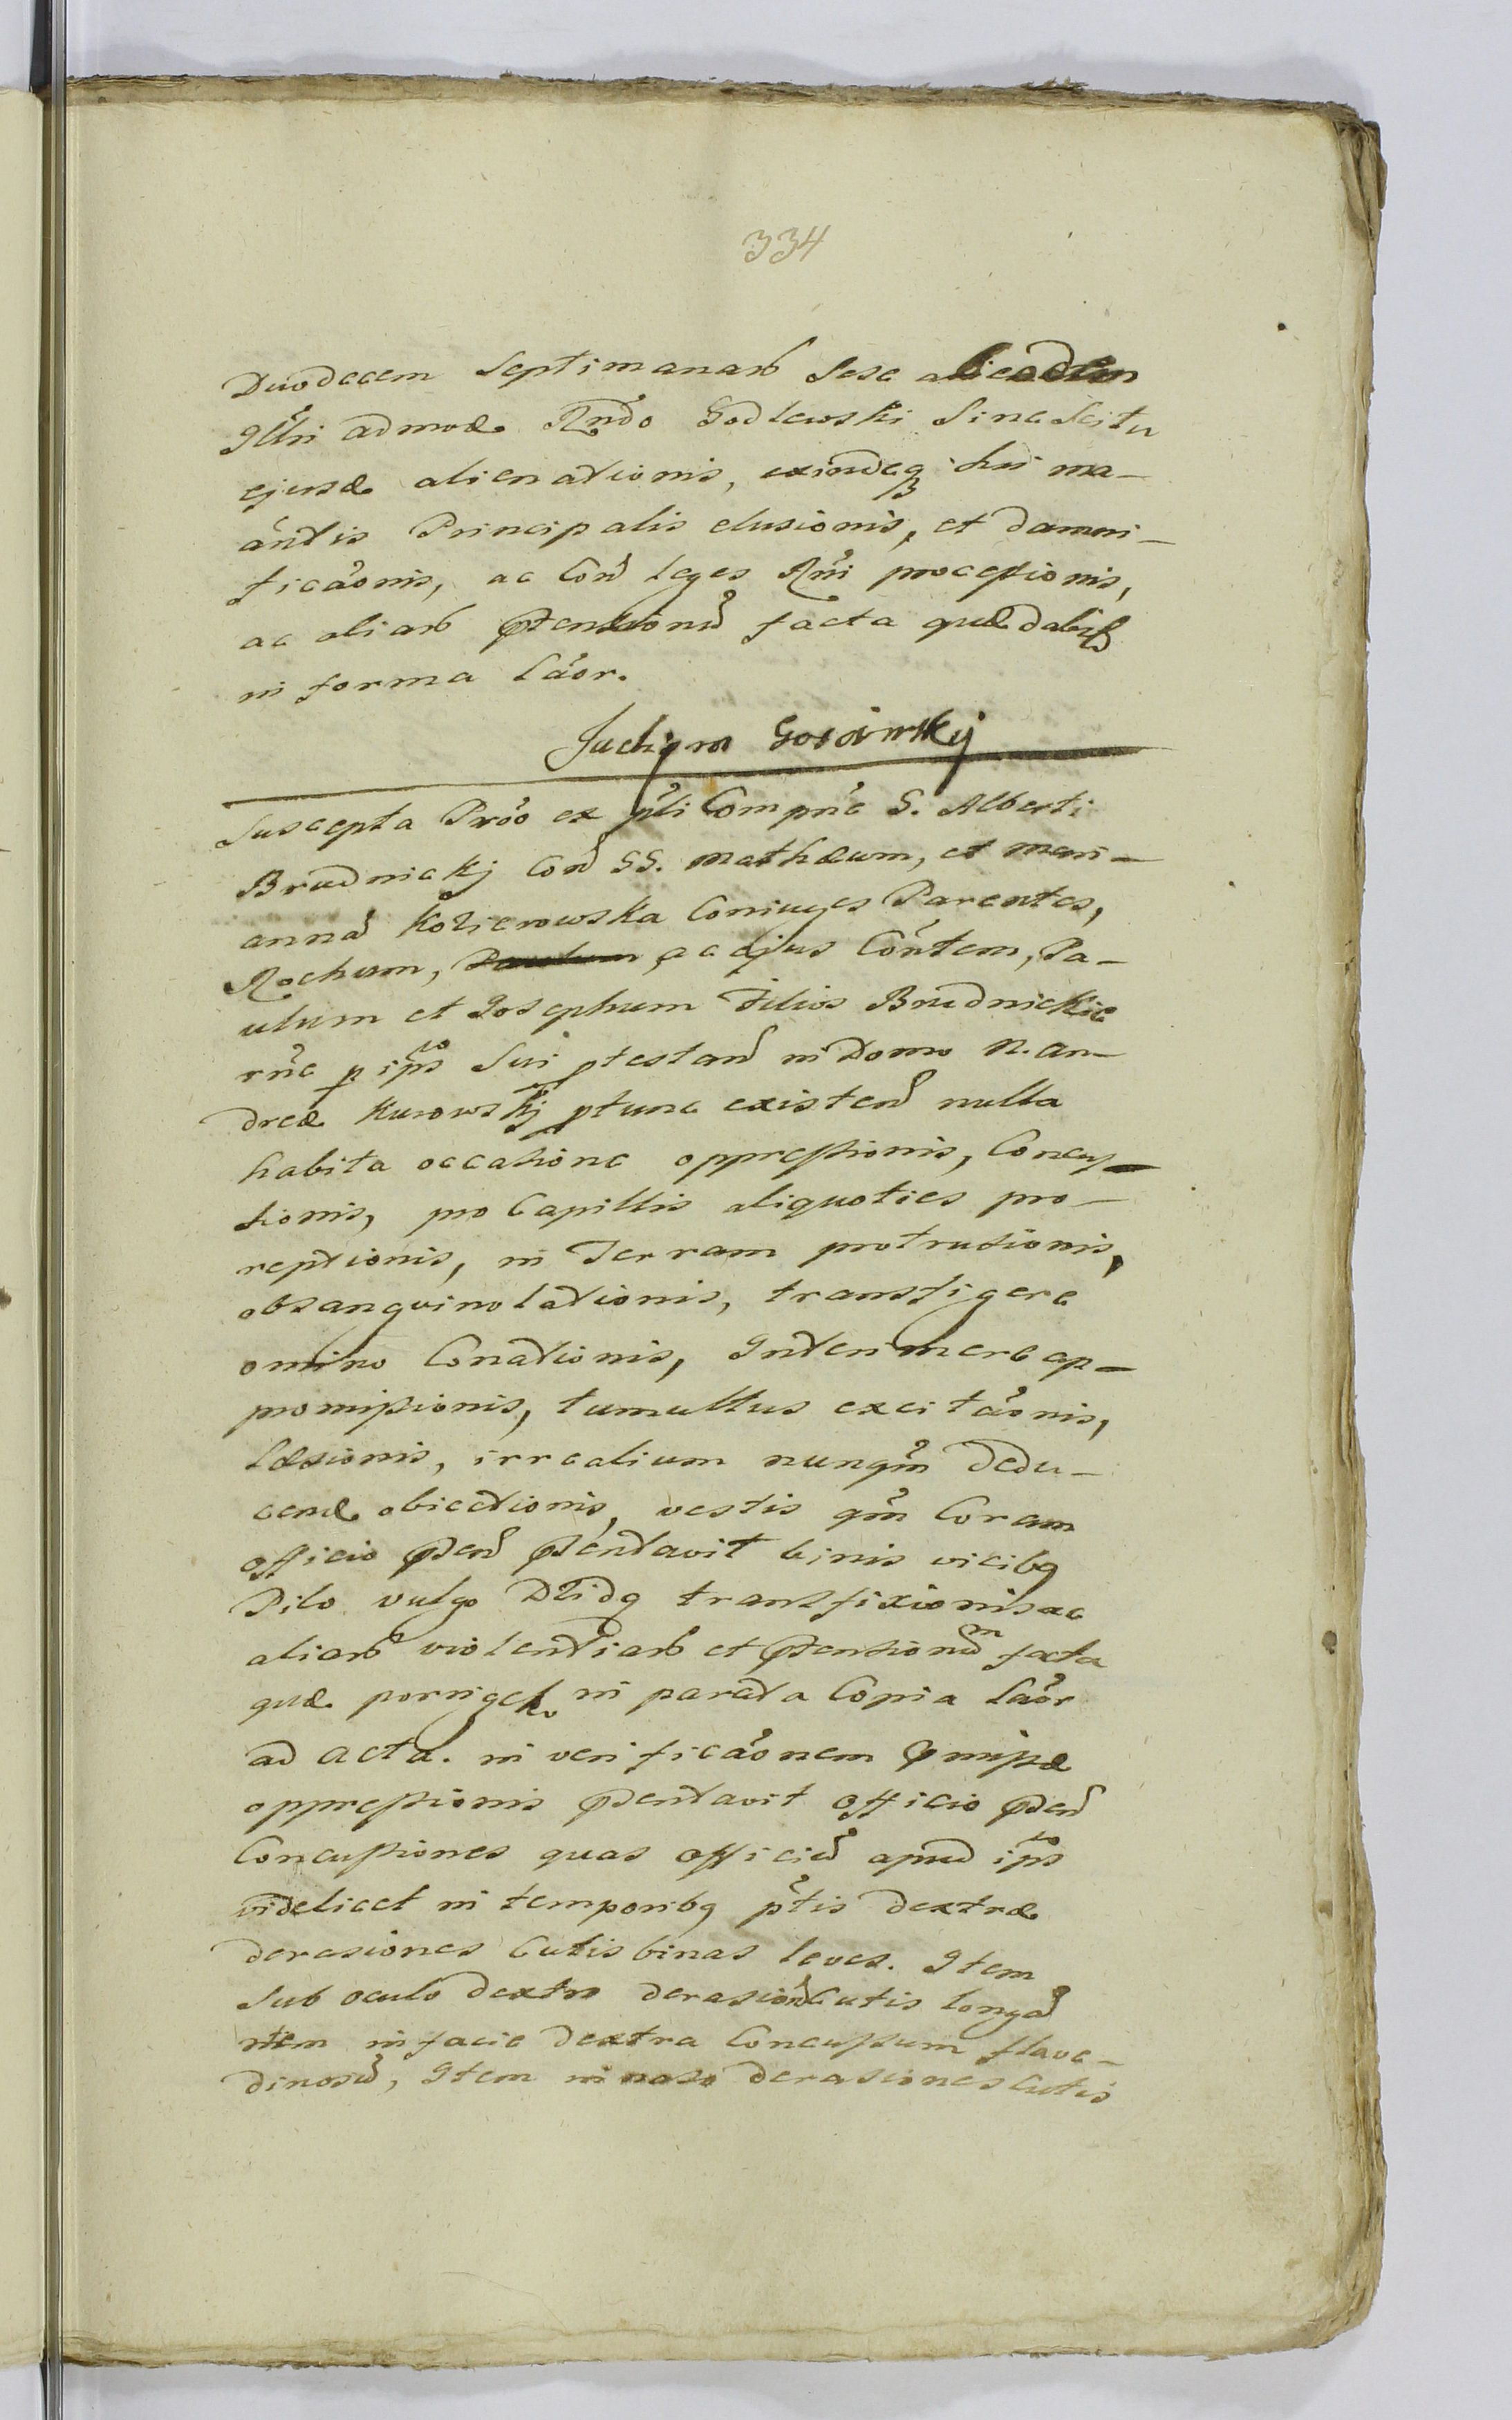 334
Duodecem Septimanarb Sese ab eadem
Illri admod. Rndo Godlewski Sine Scitu
ejusd. alienationis, exindeq hii ma-
antis Principalis elusionis, et damni-
ficaonis, ac Con leges Rni processionis,
ac aliarb ptensionu facta quae dabit
in forma Laor.
Gosoiwskij
Suscepta Proo ex pli Compne S. Alberti
Brudnickj Con SS. Mathaeum, et Mari-
anna Kozierowska Coniuges Parentes,
Rochum, ac ejus Contem, Pa-
ulum et Josephum Filios Brudnickie
rne p ips Sui ptestan in Domo N. An-
dreae Kurowskj ptunc existen nulla
habita occasione oppressionis, Concus-
sionis, pro Capillis aliquoties pro-
reptionis, in Terram protrusionis,
obsanguinolationis, transfigere
omnino Conationis, Interimere ap-
promissionis, tumultus excitaonis,
Laesionis, irrealium nunqm dedu-
cend. obiectionis, vestis qm Coram
Officio psen psentavit binis vicibq
Pilo vulgo Dzidq transfixionis ac
aliarb violentiarb et ptensionum facta
quae porriget in parata Copia Laor
ad acta. in verificaonem pmissae
oppressionis psentavit Officio psen
Concussiones quas Officiu apud ips
videlicet in temporibq ptis dextrae
derasiones Cutis binas leves. Item
Sub oculo dextro derasion Cutis longa
item in facie dextra Concussum flave-
dinosu, Item in naso derasiones Cutis